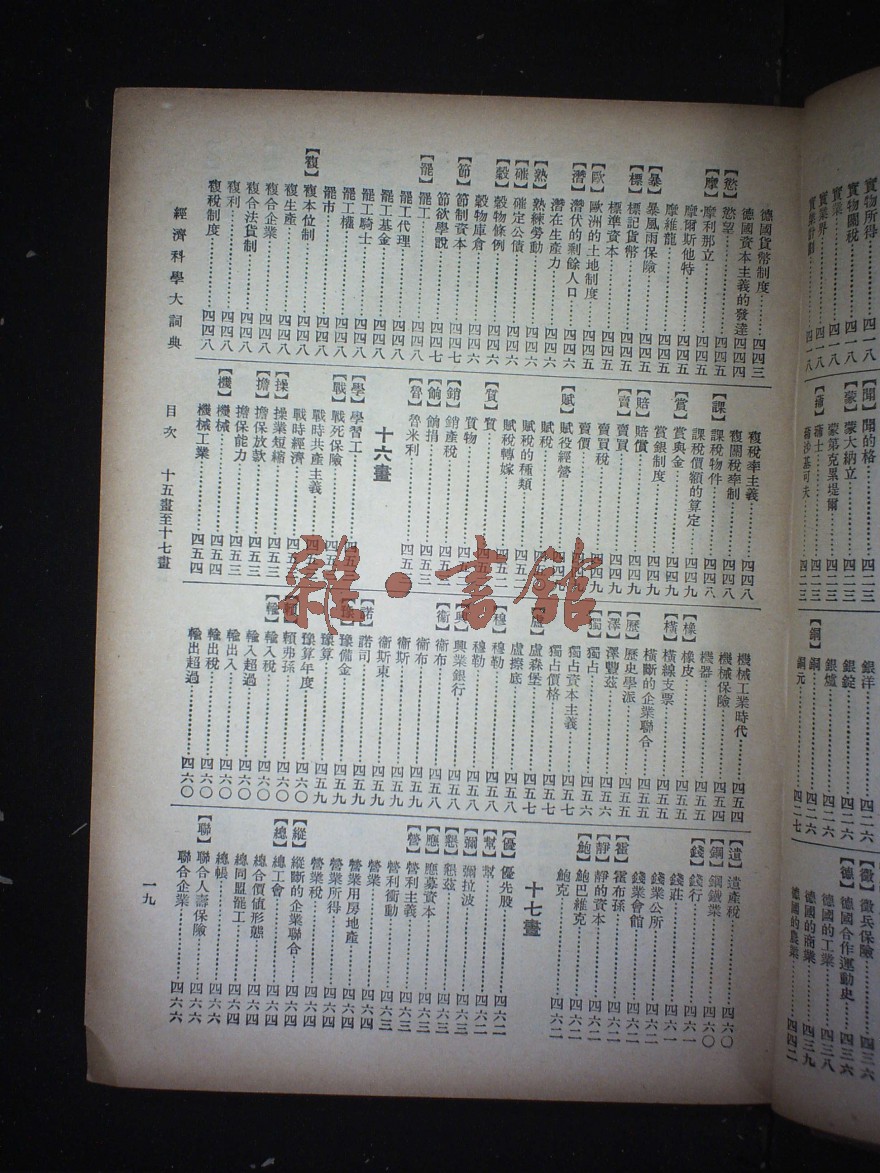 德國貨幣制度……四四三
德國資本主義的發達……四四四
【慾】慾望……四四五
【摩】摩利那立……四四五
摩爾斯他特……四四五
摩維龍……四四五
【暴】暴風雨保險……四四五
【標】標記貨幣……四四五
標準資本……四四五
【歐】歐洲的土地制度……四四五
【潛】潛伏的剩餘人口……四四六
潛在生產力……四四六
【熟】熟練勞動……四四六
【確】確定公債……四四六
【穀】穀物條例……四四六
穀物庫倉……四四六
【節】節制資本……四四七
節欲學說……四四七
【罷】罷工……四四八
罷工代理……四四八
罷工基金……四四八
罷工騎士……四四八
罷工權……四四八
罷市……四四八
【複】複本位制……四四八
複生產……四四八
複合企業……四四八
複合法貨制……四四八
複利……四四八
複稅制度……四四八
複稅率主義……四四八
複關稅率制……四四八
【課】課稅物件……四四八
課稅價額的算定……四四九
【賞】賞與金……四四九
賞銀制度……四四九
【賠】賠償……四四九
【賣】賣買……四四九
賣買稅……四四九
賣價……四四九
【賦】賦役經營
賦稅
賦稅的種類
賦稅轉嫁
【質】質
質物
【銷】銷產稅
【餉】餉捐……四五三
【魯】魯米利
十六畫
【學】學習工
【戰】戰死保險
戰時共產主義
戰時經濟
【操】操業短縮……四五三
【擔】擔保放款……四五三
擔保能力……四五三
【機】機械……四五四
機械工業……四五四
機械工業時代……四五四
機械保險……四五四
機器……四五五
【橡】橡皮……四五五
【橫】橫線支票……四五五
橫斷的企業聯合……四五五
【歷】歷史學派……四五五
【澤】澤豐茲……四五六
【獨】獨占……四五六
獨占資本主義……四五七
獨占價格……四五七
【盧】盧森堡……四五七
盧擦底……四五八
【穆】穆勒……四五八
穆勒……四五八
【興】興業銀行……四五八
【衛】衛布……四五八
衛布……四五九
衛斯……四五九
衛斯東……四五九
【諾】諾司……四五九
【豫】豫備金……四五九
豫算……四五九
豫算年度……四六〇
【賴】賴弗孫……四六〇
【輸】輸入稅……四六〇
輸入超過……四六〇
輸出入……四六〇
輸出稅……四六〇
輸出超過……四六〇
【遺】遺產稅……四六〇
【鋼】鋼鐵業……四六〇
【錢】錢行……四六一
錢莊……四六一
錢業公所……四六二
錢業會館……四六二
【霍】霍布孫……四六二
【靜】靜的資本……四六二
【鮑】鮑巴維克……四六二
鮑克……四六二
十七畫
【優】優先股……四六二
【幫】幫……四六二
【彌】彌拉波……四六二
【懇】懇茲……四六三
【應】應募資本……四六三
【營】營利主義……四六三
營利衝動……四六三
營業……四六三
營業用房地產……四六四
營業所得……四六四
營業稅……四六四
【縱】縱斷的企業聯合……四六四
【總】總工會……四六四
總合價値形態……四六四
總同盟罷工……四六四
總帳……四六六
【聯】聯合人壽保險……四六六
聯合企業……四六六
經濟科學大詞典 目次 十五畫至十七畫 一九
實物所得……四一八
實物關稅……四一八
實業……四一八
實業界……四一八
實業計劃……四一八
【閣】
【蒙】蒙大納立……四二三
蒙第克累堤爾……四二三
銀洋……四二六
銀錠……四二六
銀爐……四二六
【銅】銅……四二六
銅元……四二七
【徵】徵兵保險……四三六
【德】德國合作運動史……四三六
德國的工業……四三八
德國的商業……四三九
德國的農業……四四二
雜·書館